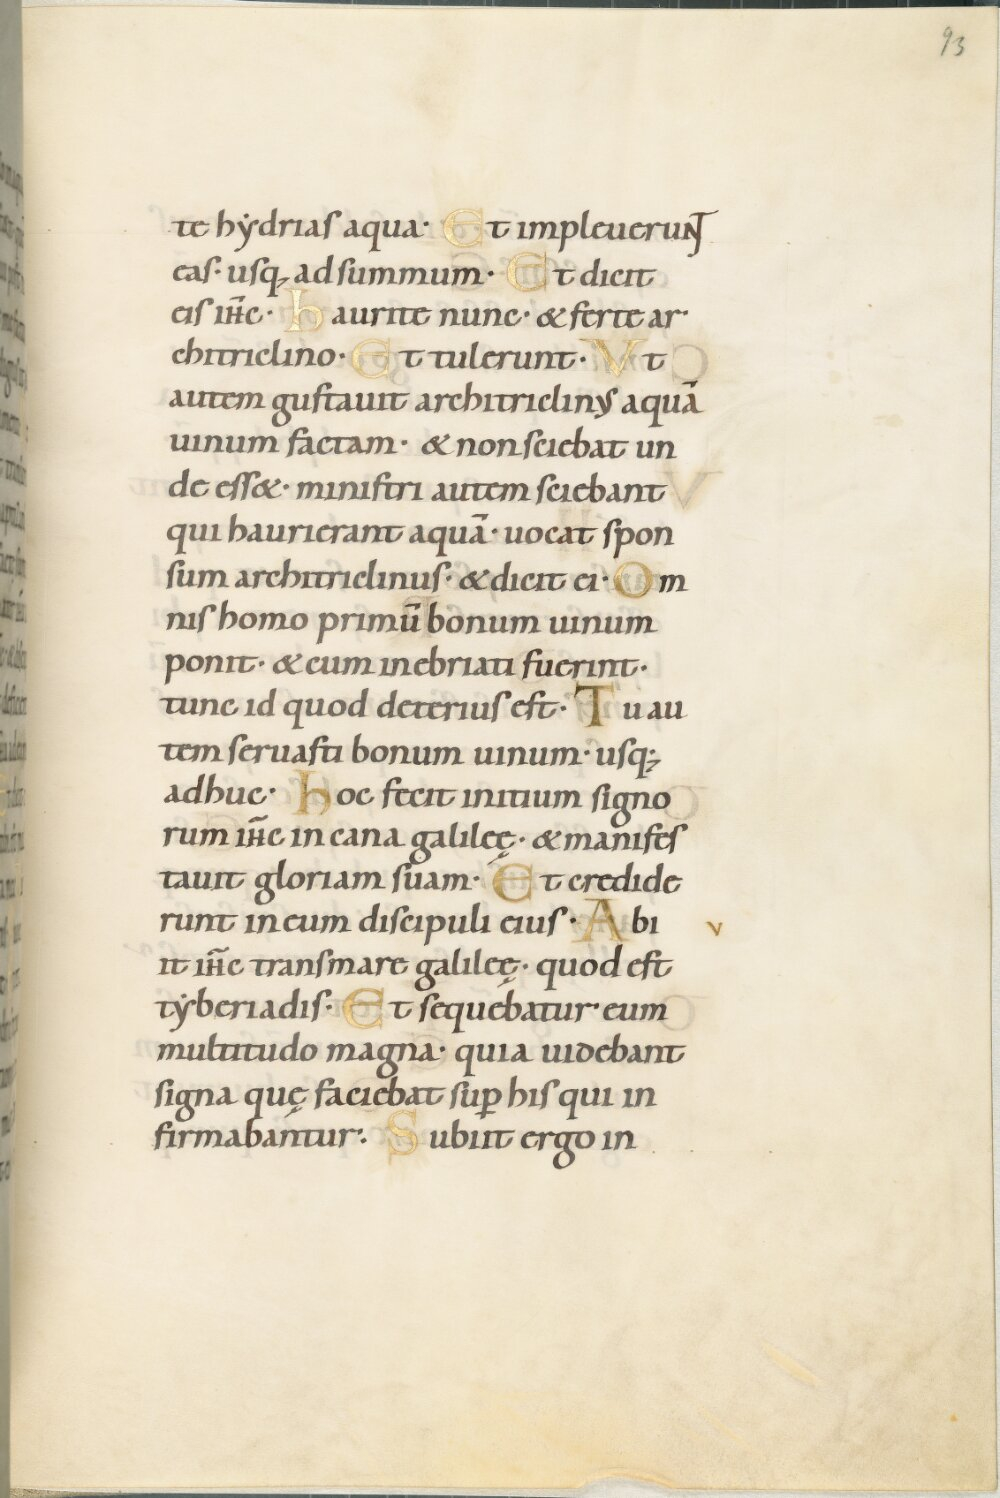 93
te hẏdrias aqua· Et impleuerunt
eas· usq; ad summum· Et dicit
eis ih̅c· haurite nunc· & ferte ar·
chitriclino· Et tulerunt· Vt
autem gustauit architriclinus aquā
uinum factam· & non sciebat un
de ess&· ministri autem sciebant
qui haurierant aquā· uocat spon
sum architriclinus· & dicit ei· Om
nis homo primū bonum uinum
ponit· & cum inebriati fuerint·
tunc id quod deterius est· Tu au
tem seruasti bonum uinum· usq;
adhuc· hoc fecit initium signo
rum ih̅c in cana galileę· & manifes
tauit gloriam suam· Et credide
runt in eum discipuli eius· Abi v
it ih̅c trans mare galileę· quod est
tẏberiadis· Et sequebatur eum
multitudo magna· quia uidebant
signa quę faciebat suꝑ his qui in
firmabantur· Subiit ergo in